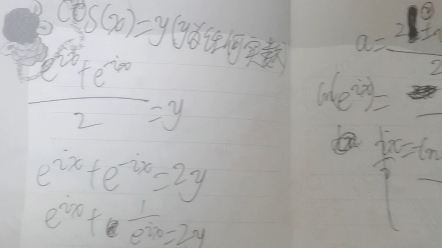 cos(x)=y(y为任何实数)
e^{ix}+e^{-ix}
2
=y
e^{ix}+e^{-ix}=2y
e^{ix}+\frac{1}{e^{ix}}=2y
a=
2
2
ln(e^{ix})=
ix=ln